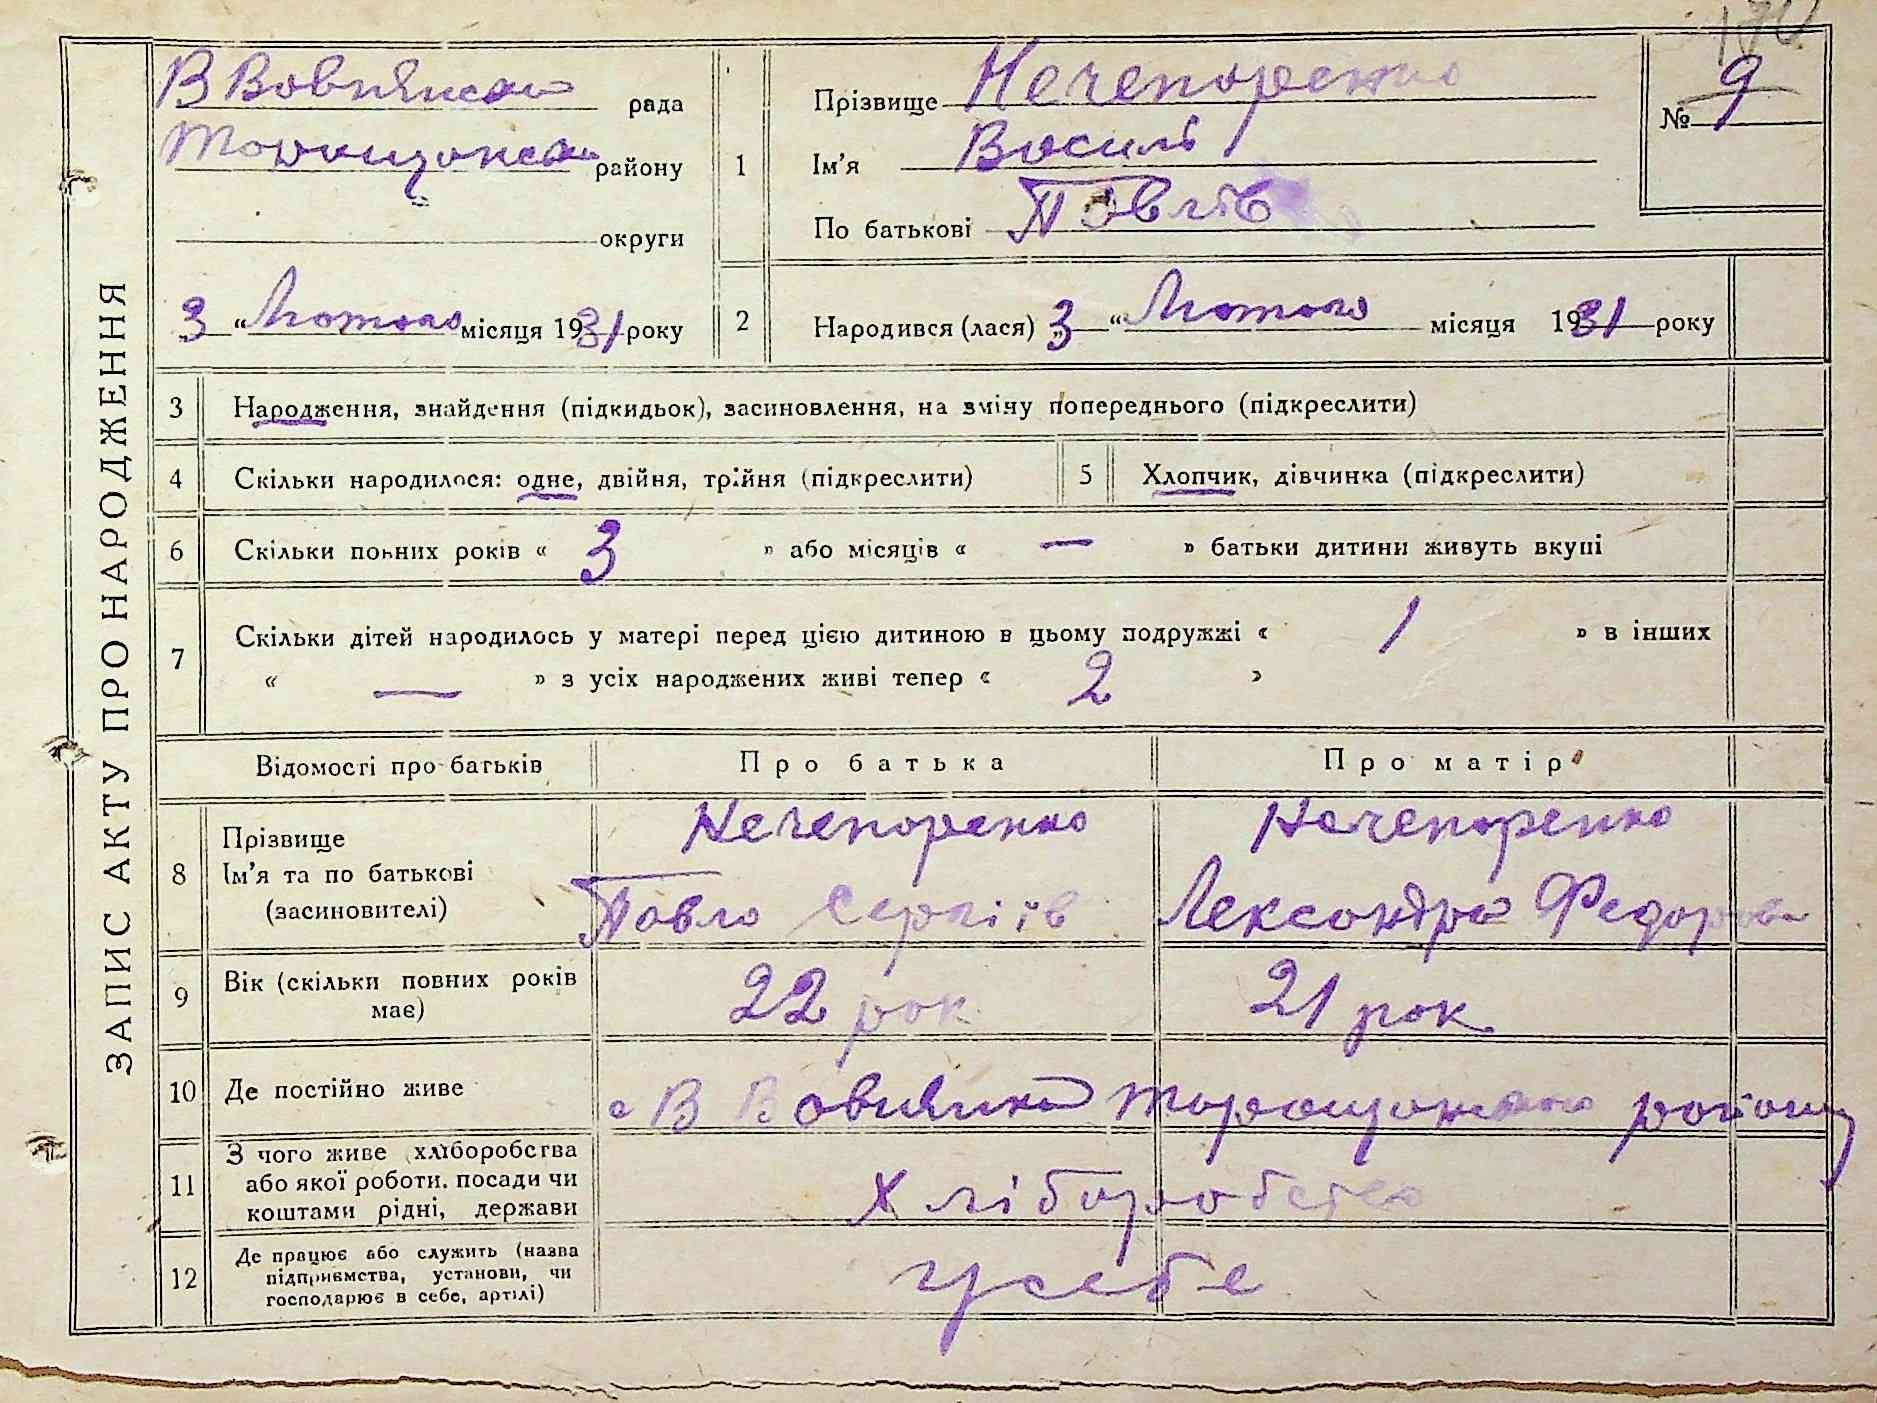 170
ЗАПИС АКТУ ПРО НАРОДЖЕННЯ
В Вовнянська рада
Таращанська району
округи
3 „ Лютого місяця 1931 року
1
Прізвище Нечепоренко
Ім'я Василь
По батькові Павлів
№ 9
2 Народився (лася) 3 „ Лютого місяця 1931 року
3 Народження, знайдення (підкидьок), засиновлення, на зміну попереднього (підкреслити)
4 Скільки народилося: одне, двійня, трійня (підкреслити) 5 Хлопчик, дівчинка (підкреслити)
6 Скільки повних років « 3 » або місяців « — » батьки дитини живуть вкупі
7 Скільки дітей народилось у матері перед цією дитиною в цьому подружжі « 1 » в інших
« — » з усіх народжених живі тепер « 2 »
Відомості про батьків Про батька Про матір
8 Прізвище Нечепоренко Нечепоренко
Ім'я та по батькові Павло Сергіїв Лександра Федорова
(засиновителі)
9 Вік (скільки повних років має) 22 рок 21 рок
10 Де постійно живе с В Вовнянка Таращанського району
11 З чого живе хліборобства
або якої роботи, посади чи
коштами рідні, держави Хліборобство
12 Де працює або служить (назва
підприємства, установи, чи
господарює в себе, артілі) у себе